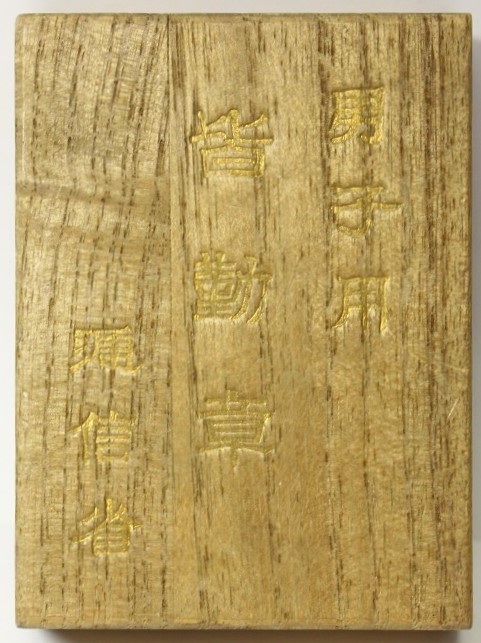 男子用
皆勤章
逓信省